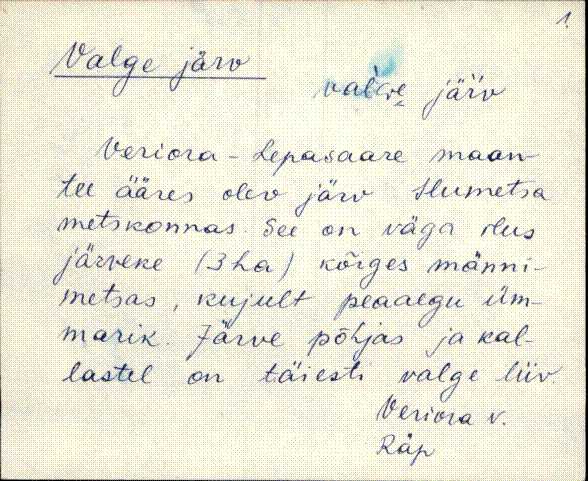 1.
Valge järv
järv
Veriora - Lepasaare maan-
tee ääres olev järv Ilumetsa
metskonnas. See on väga ilus
järveke (3 ha) kõrges männi-
metsas, kujult peaaegu üm-
marik. Järve põhjas ja kal-
lastel on täiesti valge liiv.
Veriora v.
Räp